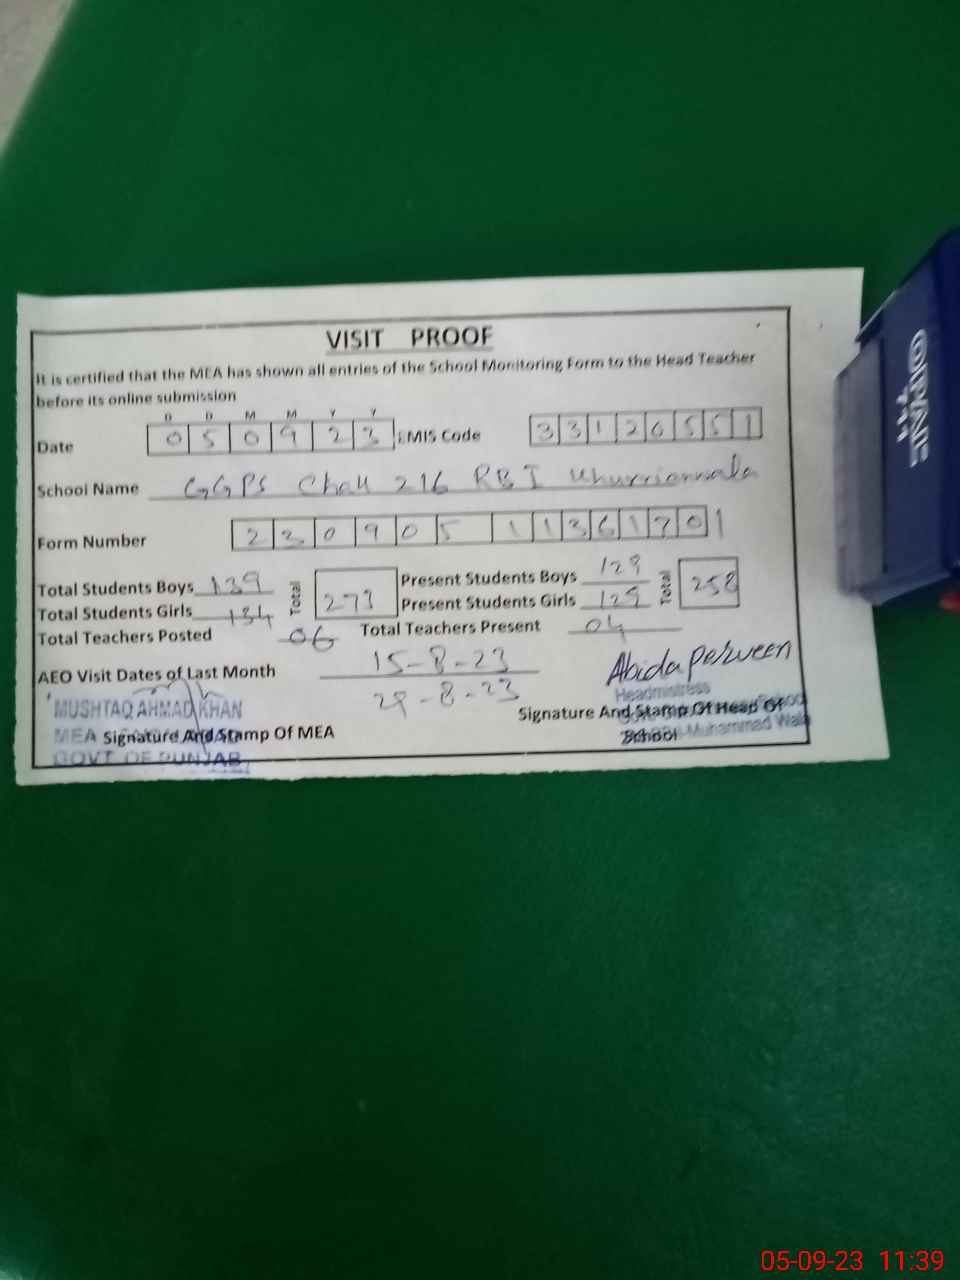 VISIT PROOF
It is certified that the MEA has shown all entries of the School Monitoring Form to the Head Teacher
before its online submission
D D M M Y Y
Date 0 5 0 9 2 3 EMIS Code 3 3 1 2 0 5 5 1
School Name GGPS Chak 216 RB I Khurrianwala
Form Number 2 3 0 9 0 5 1 1 3 6 1 7 0 1
Total Students Boys 139 Total 273 Present Students Boys 129 Total 258
Total Students Girls 134 Present Students Girls 129
Total Teachers Posted 06 Total Teachers Present 04
AEO Visit Dates of Last Month 15-8-23
29-8-23
Abida Perveen
MUSHTAQ AHMAD KHAN
MEA
GOVT OF PUNJAB
Signature And Stamp Of MEA
Headmistress
Signature And Stamp Of Head Of
School
Muhammad Wala
05-09-23 11:39